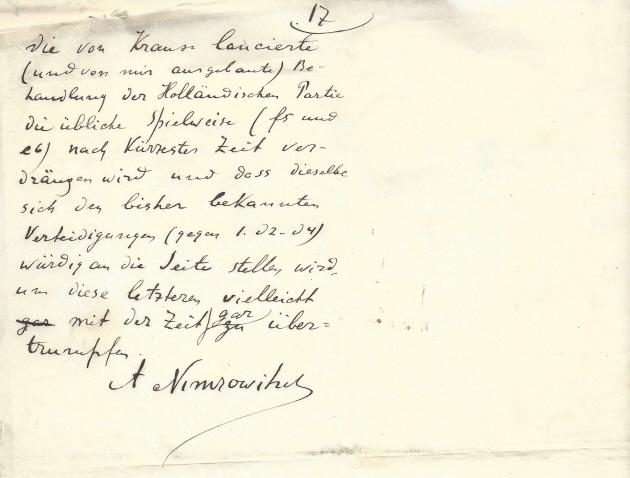 17
die von Krause lancierte
(und von mir ausgebaute) Be-
handlung der Holländischen Partie
die übliche Spielweise (f5 und
e6) nach Kürzester Zeit ver-
drängen wird und dass dieselbe
sich den bisher bekannten
Verteidigungen (gegen 1. d2-d4)
würdig an die Seite stellen wird,
um diese letzteren vielleicht
gar mit der Zeit gar zu über=
trumpfen.
A Nimzowitsch